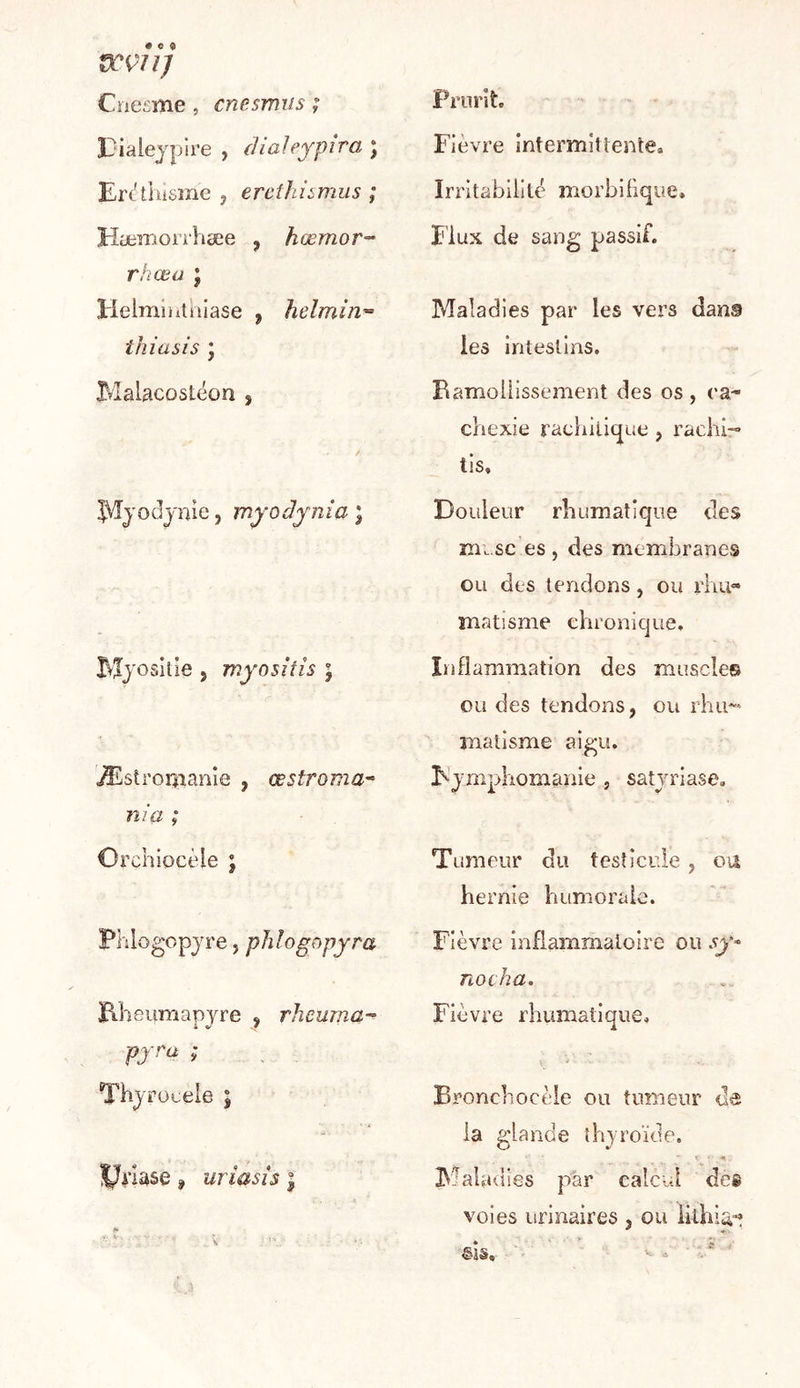 xviij
Cnesme, cnesmus ; Prurit.
Dialeypire, dialeypira ; Fièvre intermittente.
Eréthisme, erethismus ; Irritabilité morbifique.
Hæmorrhæe, hæmor- Flux de sang passif.
rhœa ;
Helminthiase, helmin- Maladies par les vers dans
thiasis ; les intestins.
Malacostéon, Ramollissement des os, ca-
chexie rachitique, rachi-
tis.
Myodynie, myodynia ; Douleur rhumatique des
muscles, des membranes
ou des tendons, ou rhu-
matisme chronique.
Myositie, myositis ; Inflammation des muscles
ou des tendons, ou rhu-
matisme aigu.
Æstromanie, œstroma- Nymphomanie, satyriase.
nia ;
Orchiocèle ; Tumeur du testicule, ou
hernie humorale.
Phlogopyre, phlogopyra Fièvre inflammatoire ou sy-
nocha.
Rheumapyre, rheuma- Fièvre rhumatique.
pyra ;
Thyrocele ; Bronchocèle ou tumeur de
la glande thyroïde.
Uriase, uriasis ; Maladies par calcul des
voies urinaires, ou lithia-
sis.